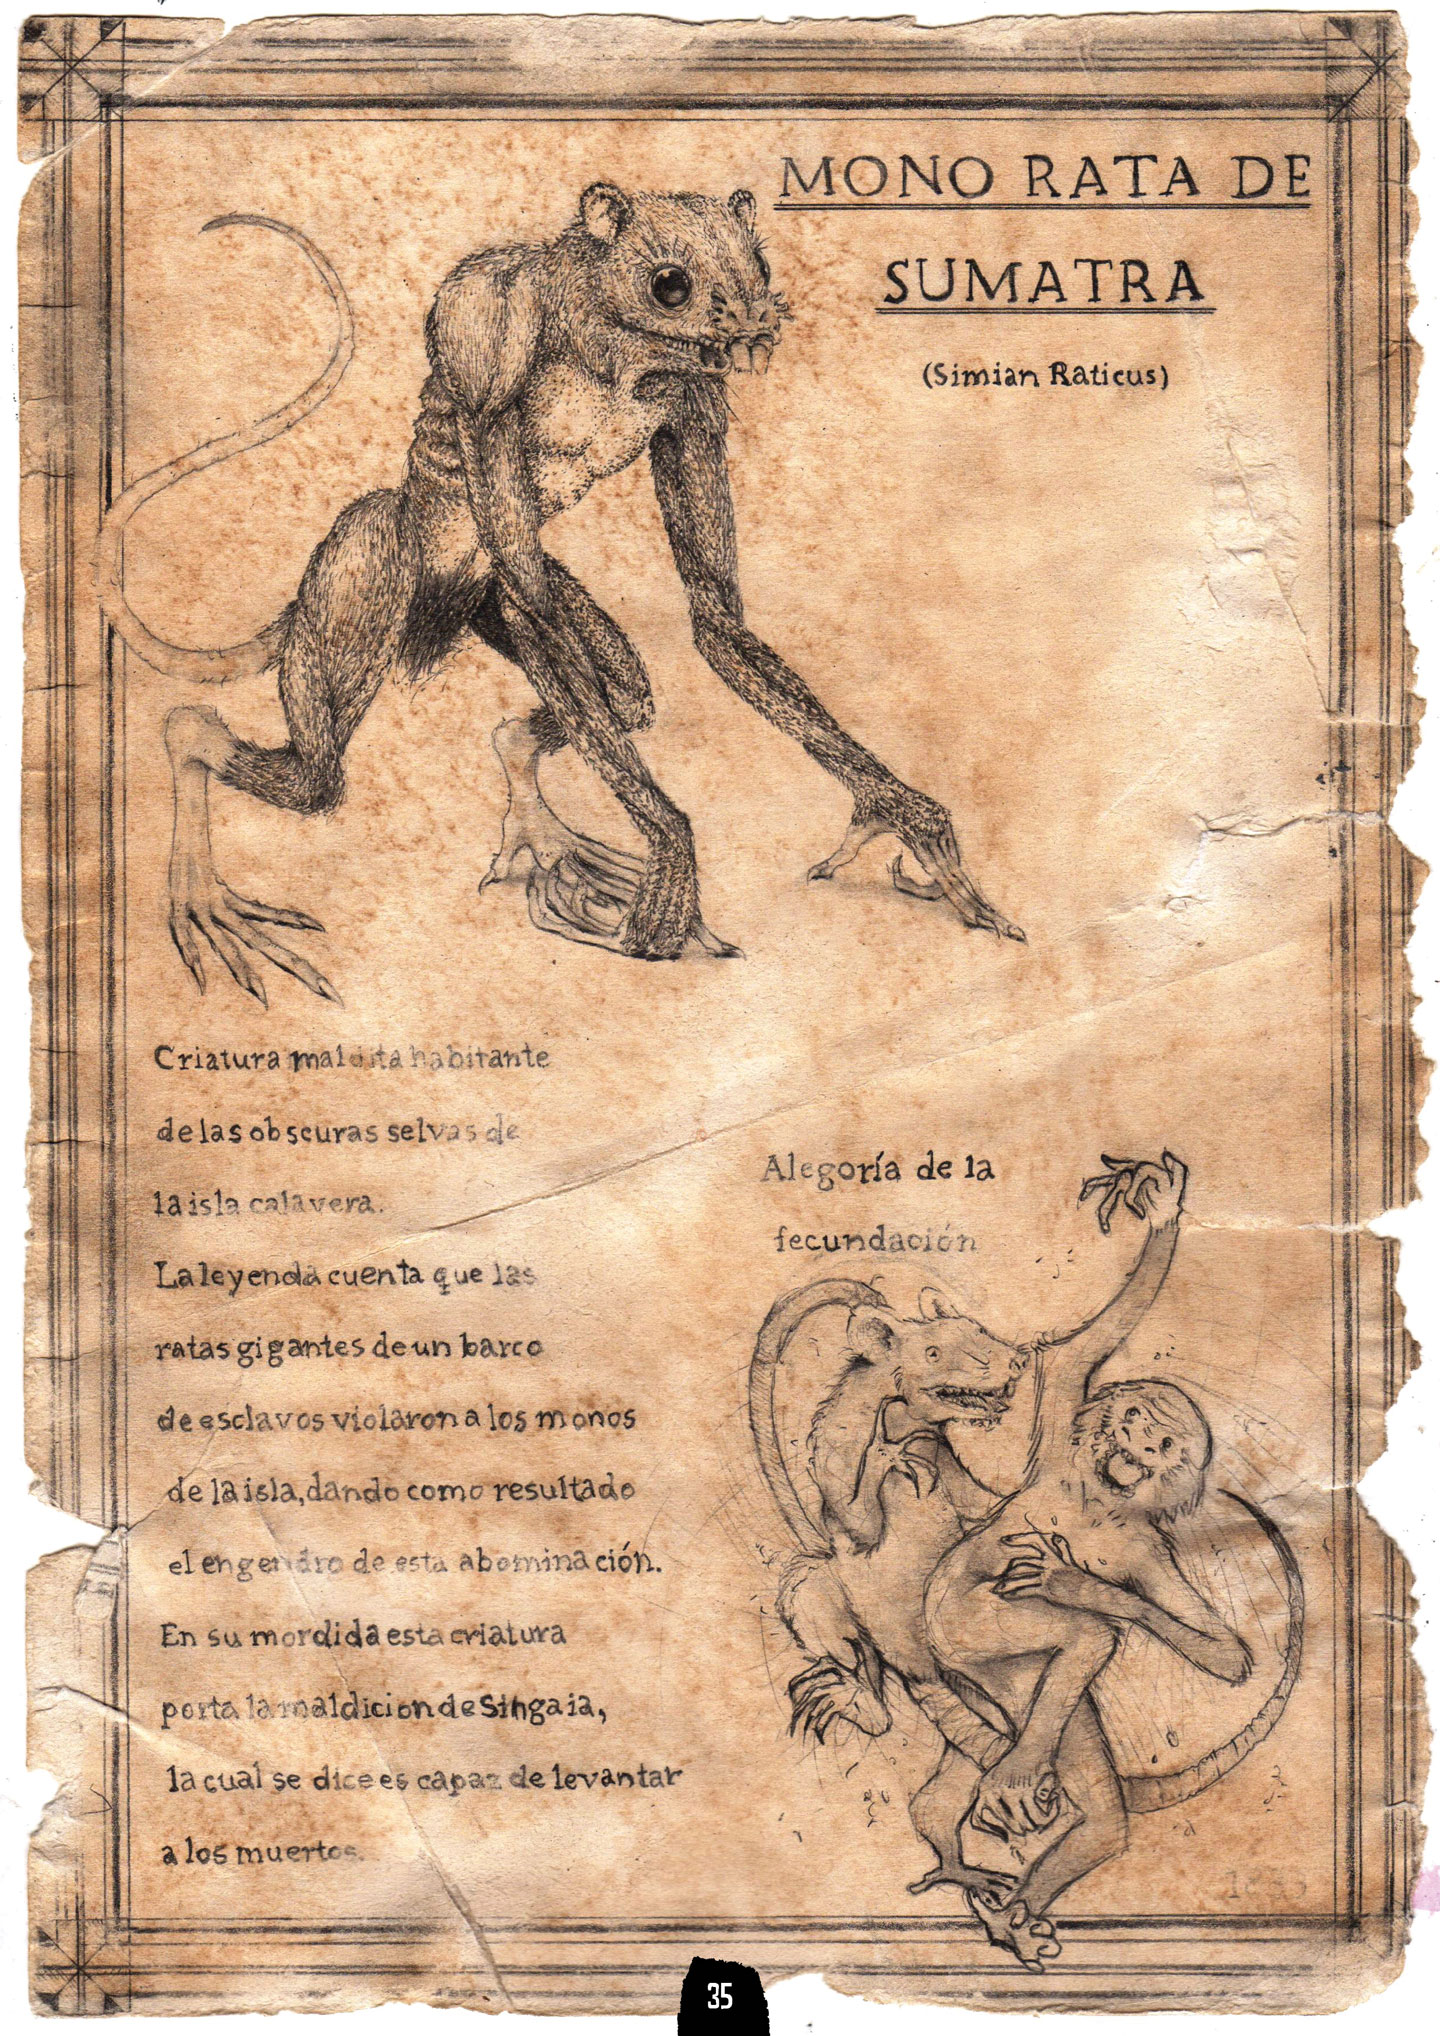 MONO RATA DE
SUMATRA
(Simian Raticus)
Criatura maldita habitante
de las obscuras selvas de
la isla calavera.
La leyenda cuenta que las
ratas gigantes de un barco
de esclavos violaron a los monos
de la isla, dando como resultado
el engendro de esta abominación.
En su mordida esta criatura
porta la maldicion de Singaia,
la cual se dice es capaz de levantar
a los muertos.
Alegoría de la
fecundación
35